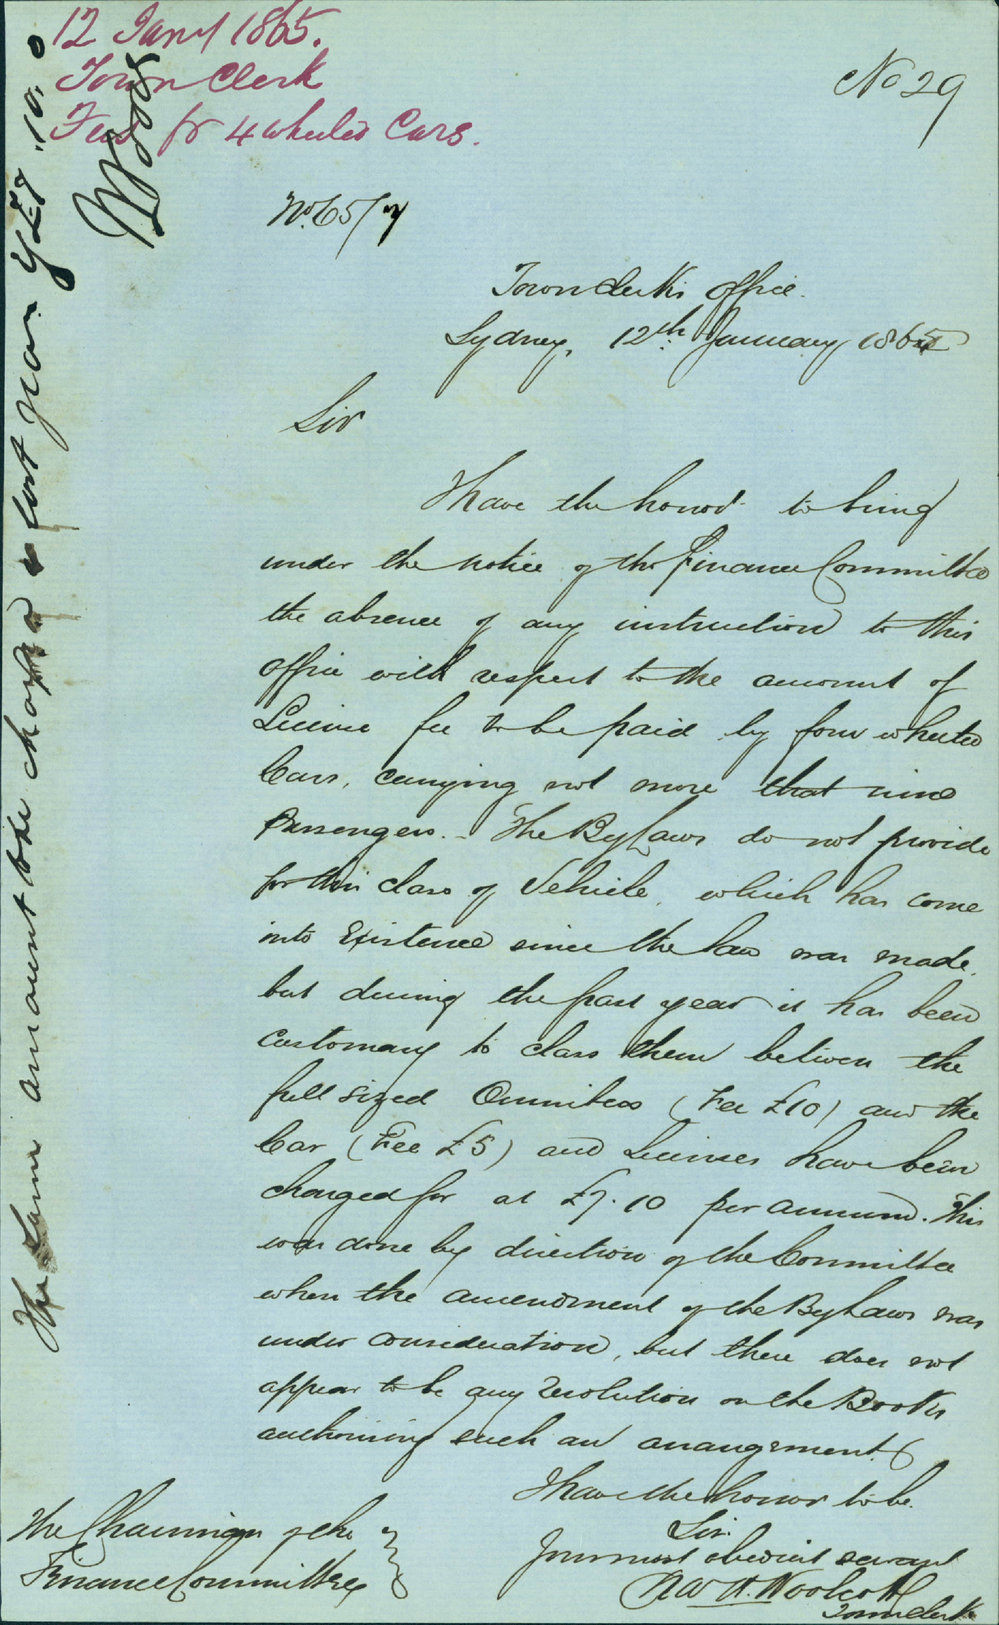 12 Jany 1865.
Town Clerk
Fees for 4 wheeled Cars.
No 29
No. 65/7
Town Clerk's Office.
Sydney, 12th January 1865
Sir
I have the honor to bring
under the notice of the Finance Committee
the absence of any instruction to this
office with respect to the amount of
License fee to be paid by four wheeled
Cars, carrying not more that nine
Passengers. The By Laws do not provide
for this class of Vehicle, which has come
into Existence since the law was made,
but during the past year it has been
customary to class them between the
full sized Omnibus (Fee £10) and the
Car (Fee £5) and Licenses have been
charged for at £7.10 per annum. This
was done by direction of the Committee
when the amendment of the By Laws was
under consideration, but there does not
appear to be any resolution on the Books
authorising such an arrangement.
I have the honor to be.
Sir.
Your most obedient servant
Woolcott
Town Clerk
The Chairman of the
Finance Committee
The same amount to be charged as last year £7.10.0